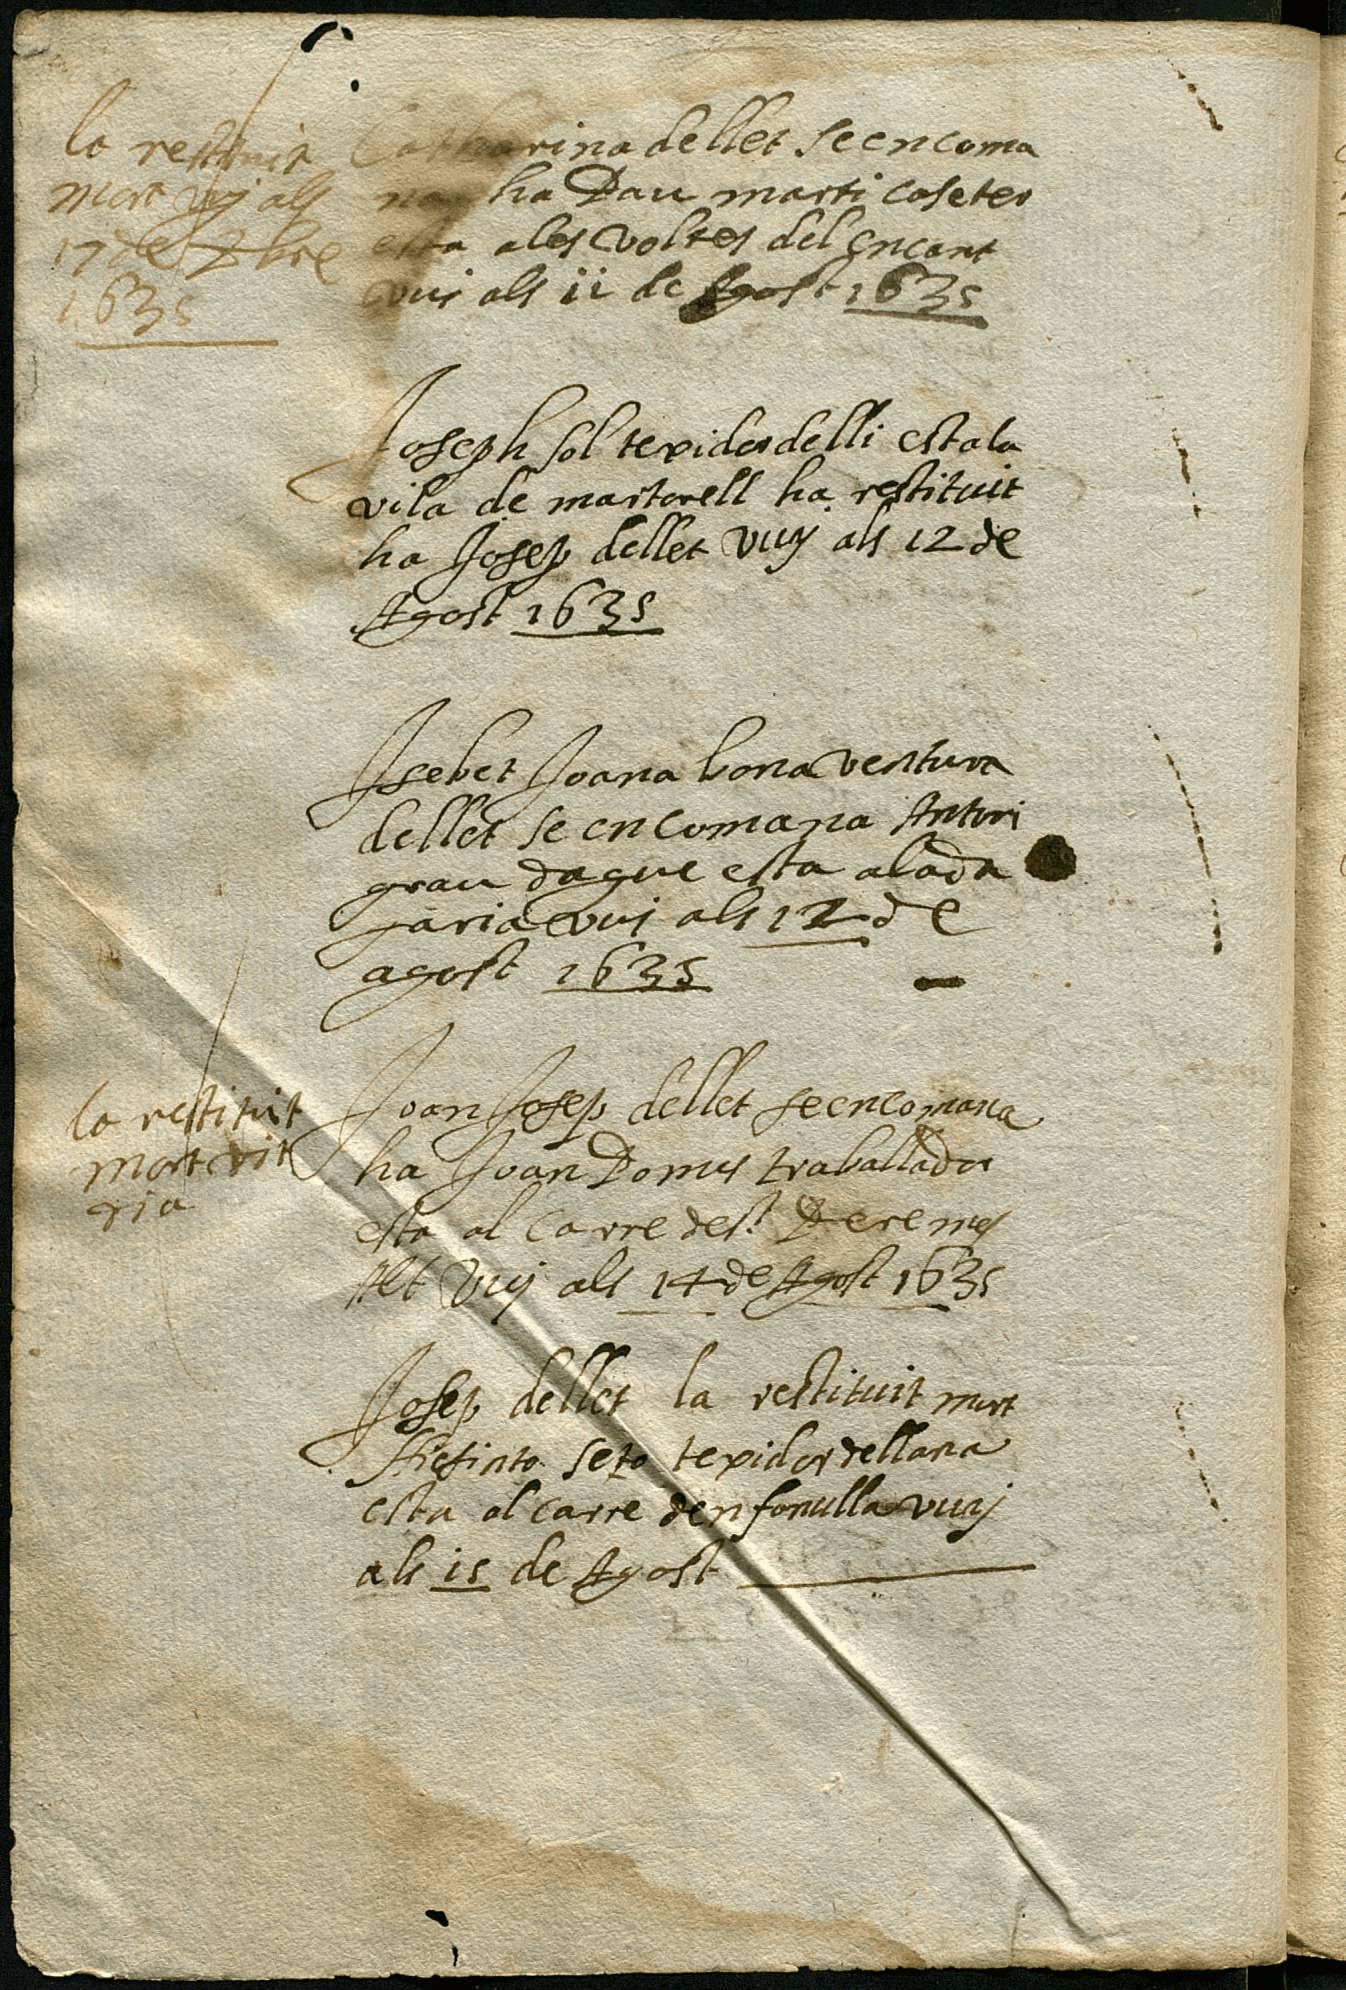 la restituit
mort vuj als
17 de Xbre
1635
Catharina de llet se encoma
na ha Pau marti caseter
esta a les voltes del encant
vui als ii de Agost 1635
Joseph sol texidor de lli esta la
vila de martorell ha restituit
ha Josep de llet vuy als 12 de
Agost 1635
Isebet Joana bona ventura
de llet se encomana Antoni
grau dague esta a la da
garia vui als 12 de
agost 1635
la restituit
mort vit
ria
Joan Josep de llet se encomana
ha Juan Domus traballador
esta al carre de st. Pere mes
Alt vuj als 14 de Agost 1635
Josep de llet la restituit mort
seto texidor de llana
esta al carre den fonulla vuj
als 15 de Agost